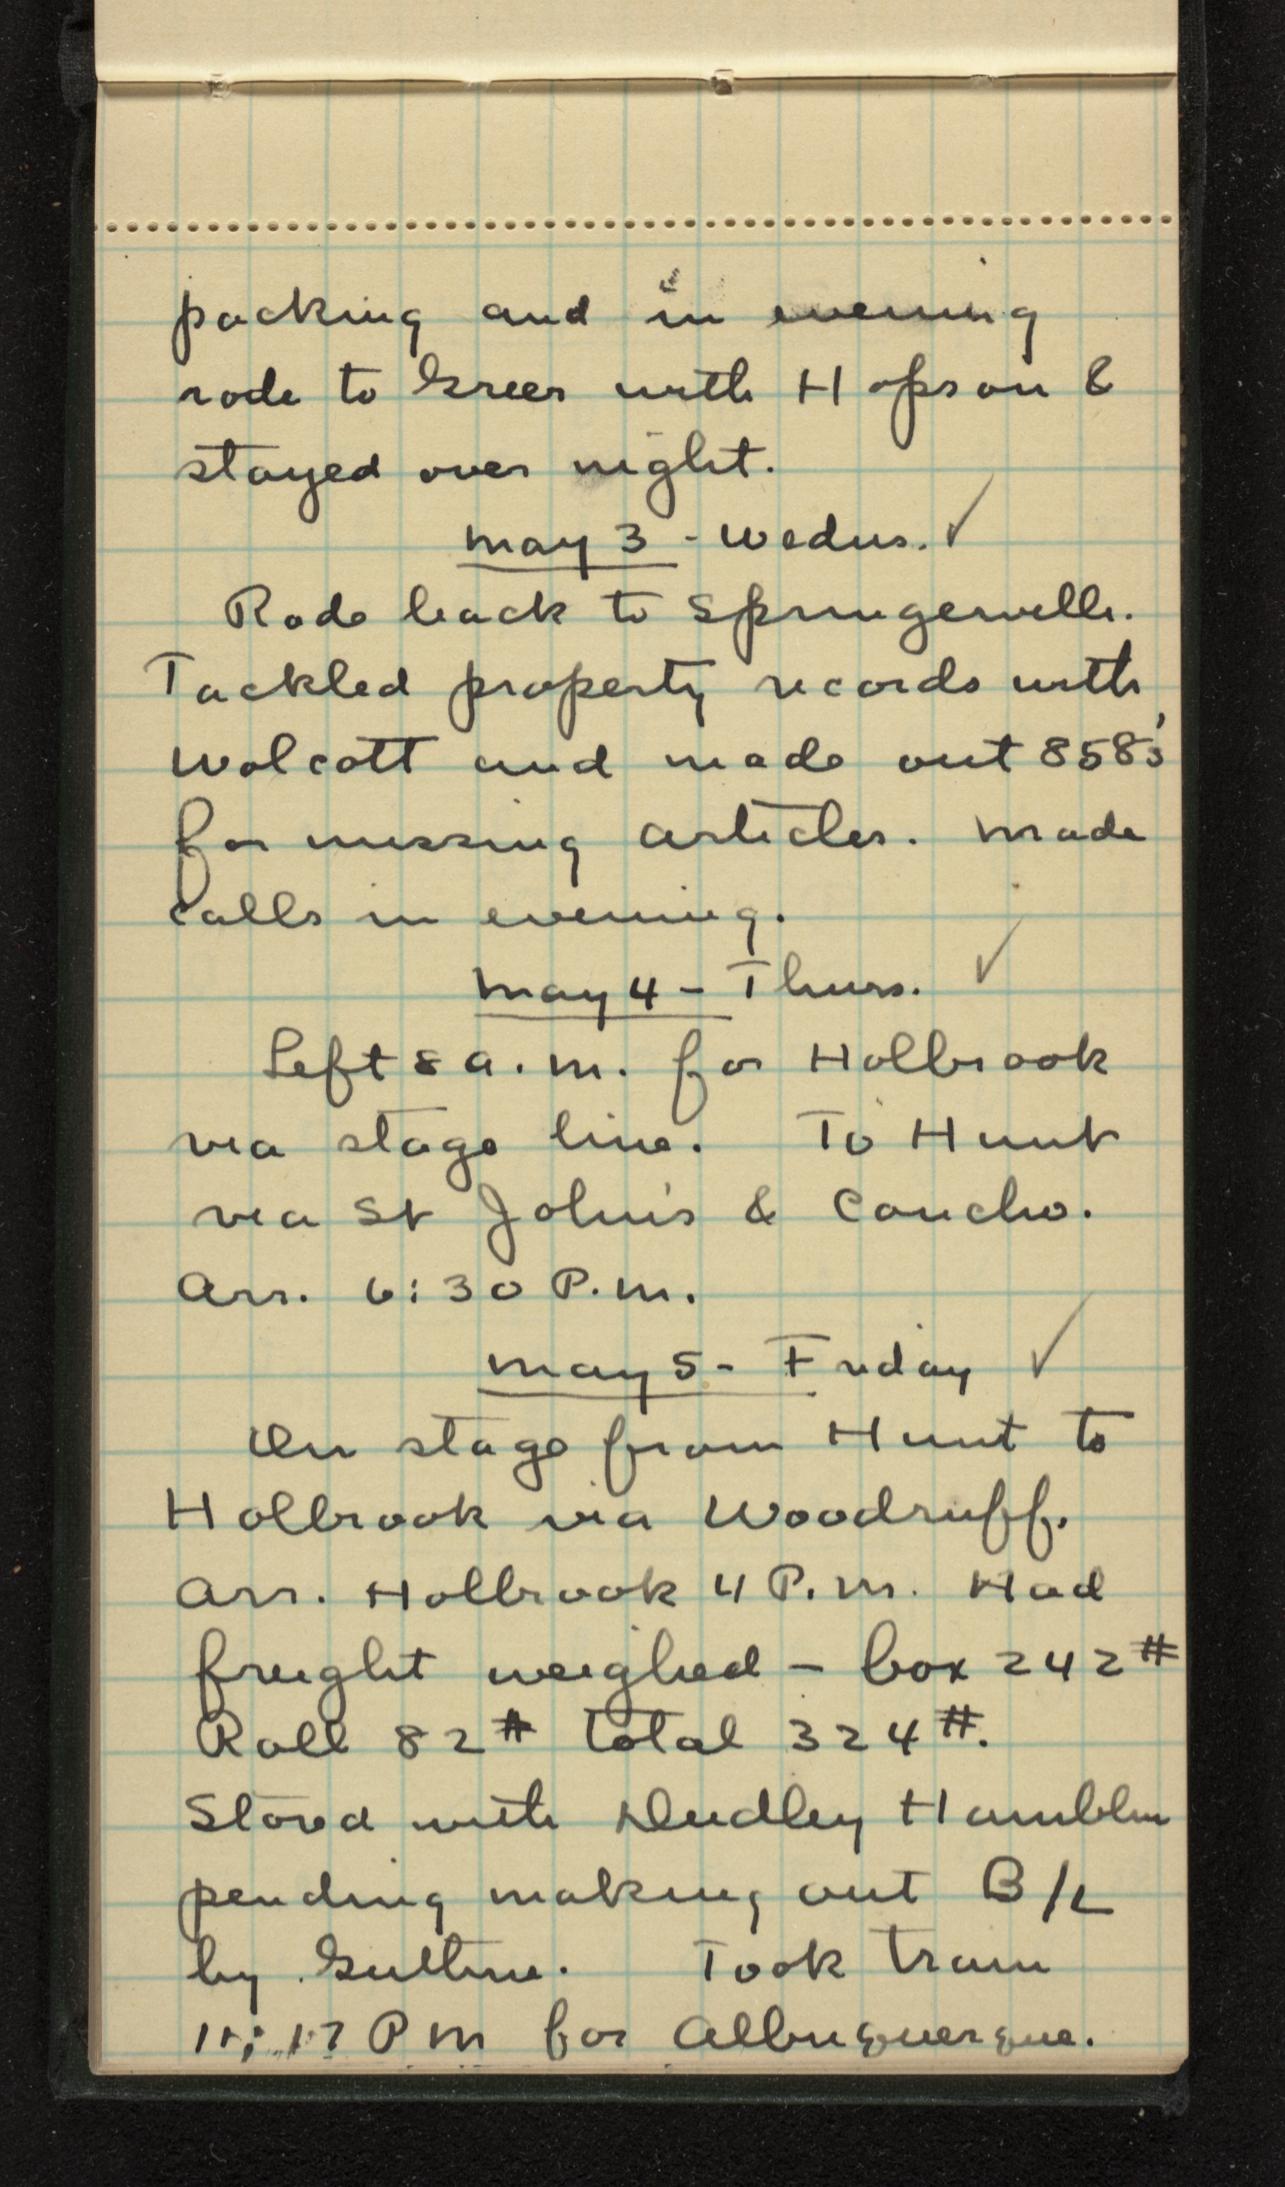 packing and in evening
rode to Greer with Hopson &
stayed over night.
May 3 - Wednes. ✓
Rode back to Springerville.
Tackled property records with
Wolcott and made out 858's
for missing articles. Made
calls in evening.
May 4 - Thurs. ✓
Left 8 a.m. for Holbrook
via stage line. To Hunt
via St John's & Concho.
Arr. 6:30 P.M.
May 5 - Friday ✓
On stage from Hunt to
Holbrook via Woodruff.
Arr. Holbrook 4 P.M. Had
freight weighed - box 242#
Roll 82# total 324#.
Stored with Dudley Hamblin
pending making out B/L
by Guthrie. Took train
11:17 PM for Albuquerque.